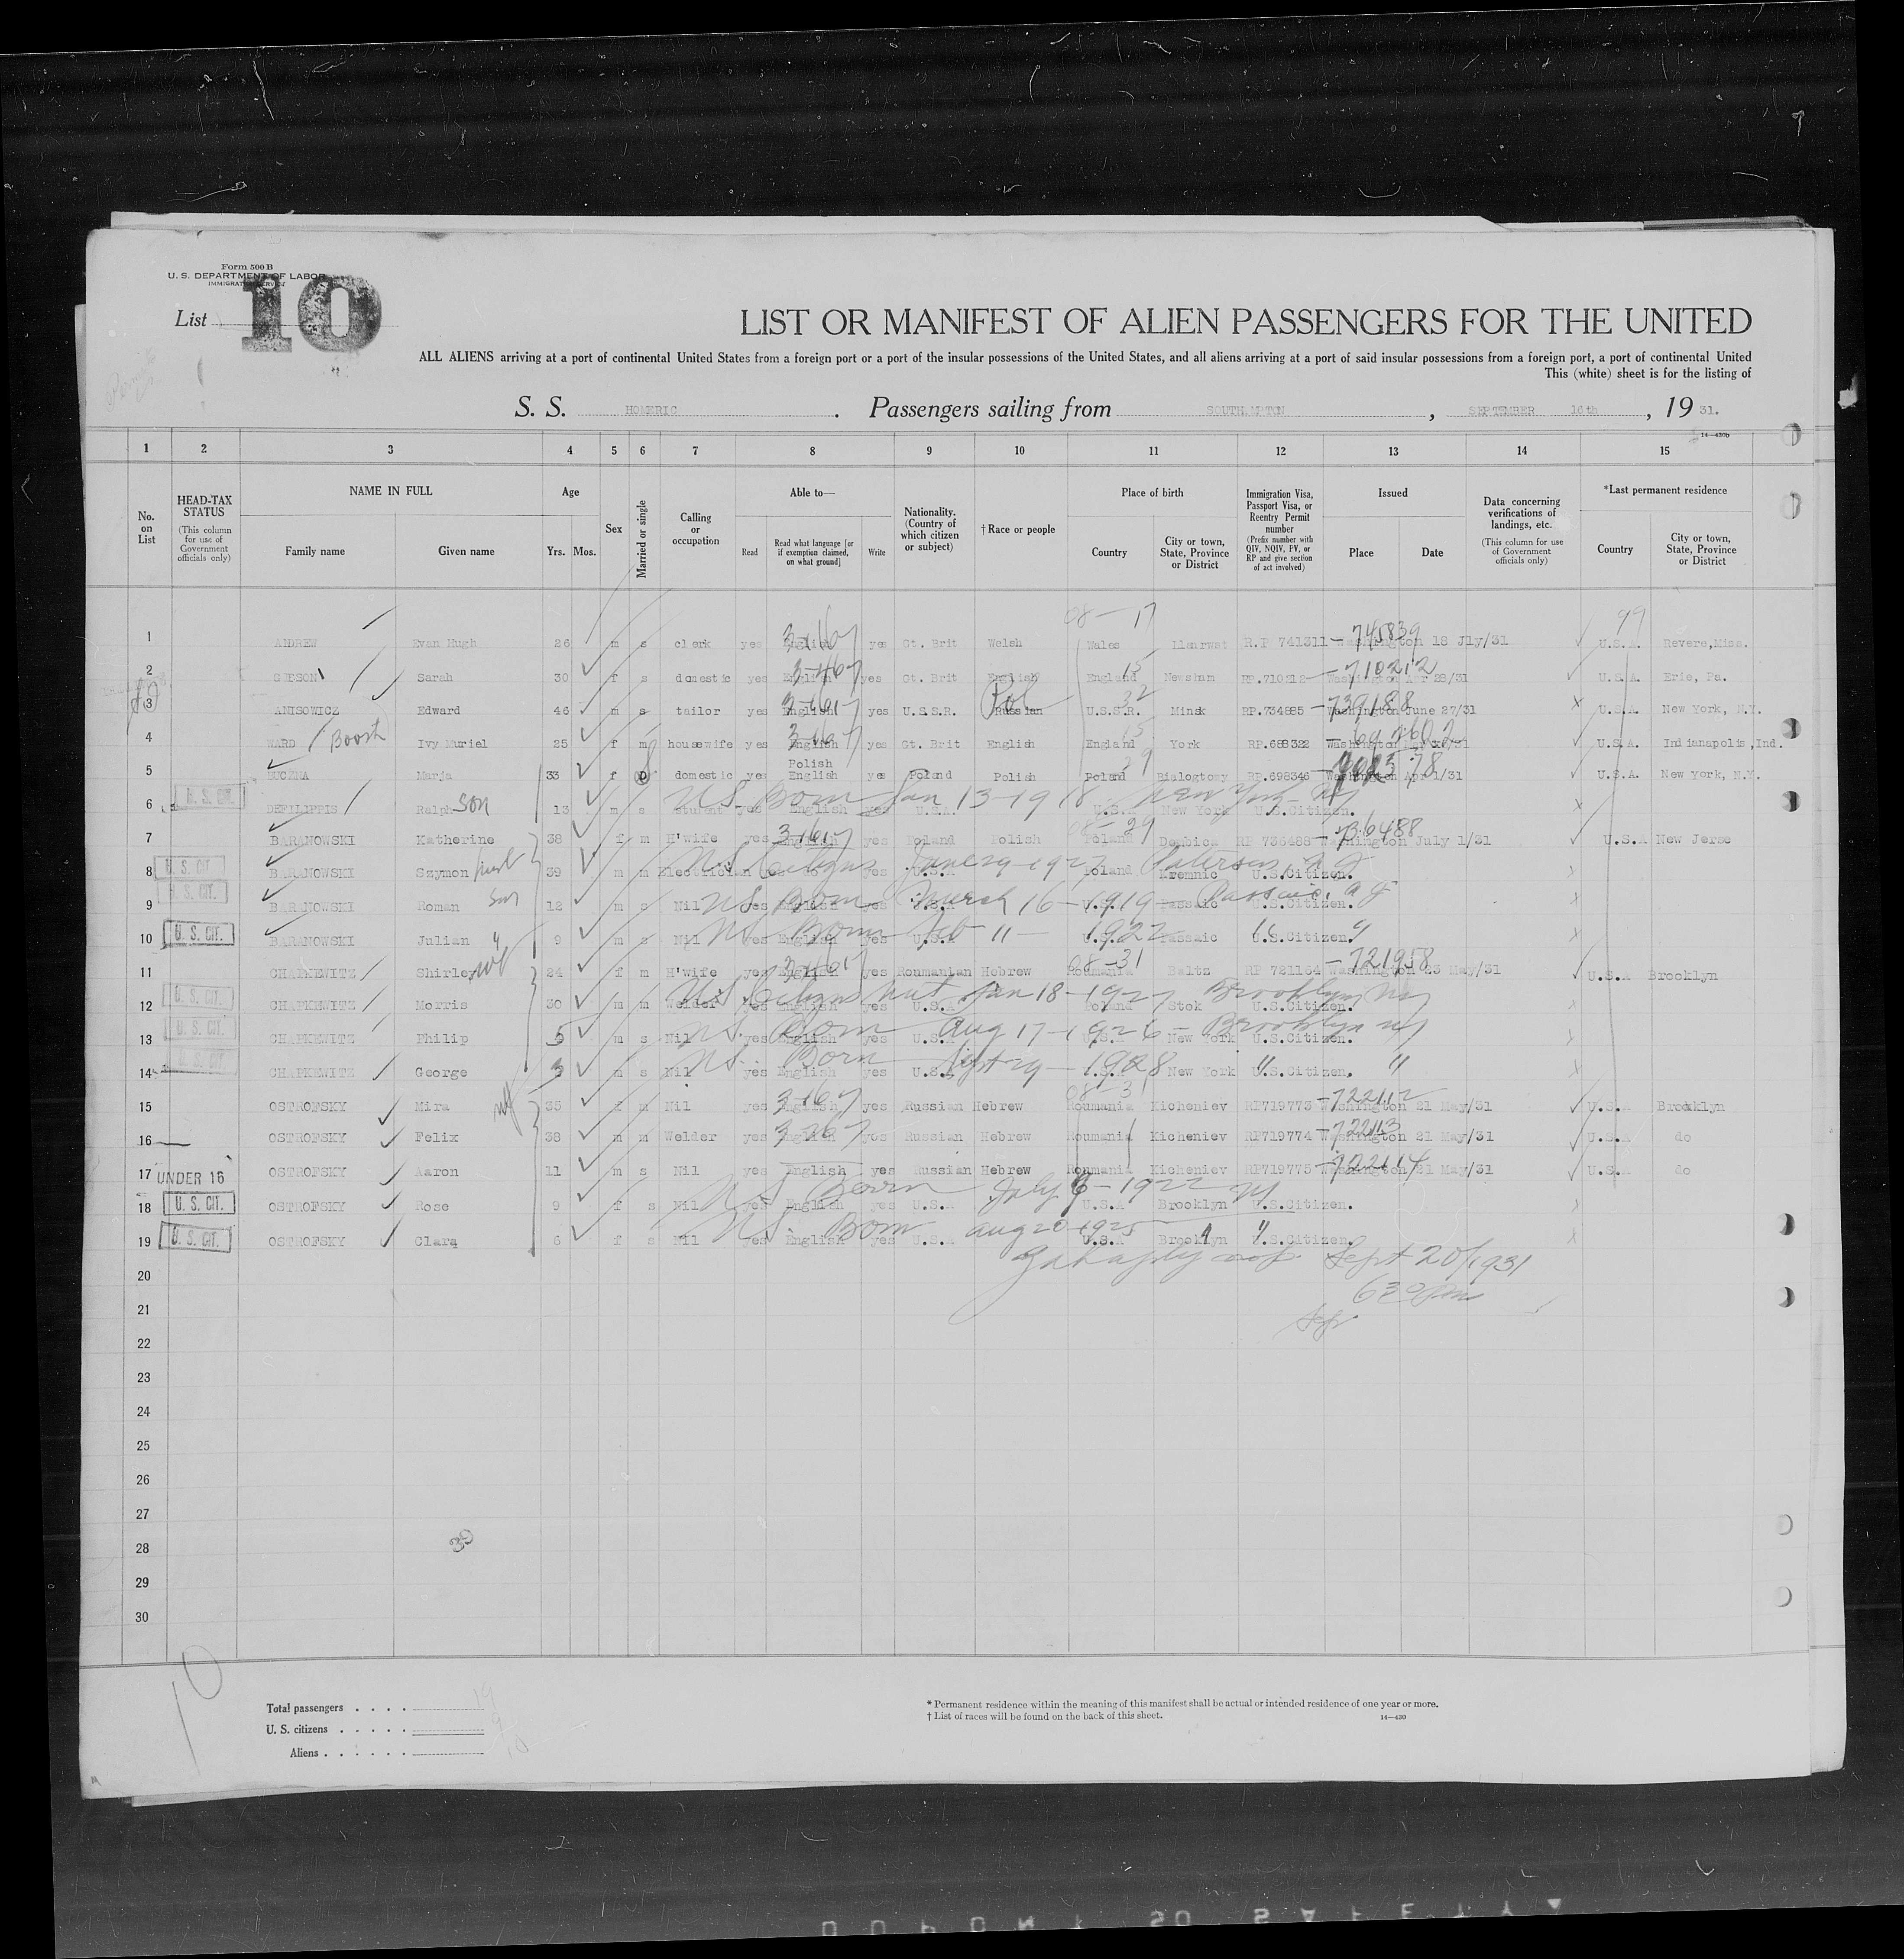 Form 500 B
U. S. DEPARTMENT OF LABOR
IMMIGRATION SERVICE
List 10
LIST OR MANIFEST OF ALIEN PASSENGERS FOR THE UNITED
ALL ALIENS arriving at a port of continental United States from a foreign port or a port of the insular possessions of the United States, and all aliens arriving at a port of said insular possessions from a foreign port, a port of continental United
This (white) sheet is for the listing of
S. S. HOMERIC. Passengers sailing from SOUTHAMPTON, SEPTEMBER 16th, 19 31.
14—430b
1 2 3 4 5 6 7 8 9 10 11 12 13 14 15
No. on List
HEAD-TAX STATUS (This column for use of Government officials only)
NAME IN FULL Family name Given name
Age Yrs. Mos.
Sex
Married or single
Calling or occupation
Able to— Read Read what language [or if exemption claimed, on what ground] Write
Nationality. (Country of which citizen or subject)
† Race or people
Place of birth Country City or town, State, Province or District
Immigration Visa, Passport Visa, or Reentry Permit number (Prefix number with QIV, NQIV, PV, or RP and give section of act involved)
Issued Place Date
Data concerning verifications of landings, etc. (This column for use of Government officials only)
*Last permanent residence Country City or town, State, Province or District
08—17 99
1 ANDREW Evan Hugh 26 m s clerk yes English yes Gt. Brit Welsh Wales R.P 741311 —745839 Washington 18 Jly/31 U.S.A. Revere,Mass.
2 Sarah 30 f s domestic yes English yes Gt. Brit English England 15 Newsham RP.710212 —710212 Washington Apr 28/31 U.S.A. Erie, Pa.
3 ANISOWICZ Edward 46 m s tailor yes English yes U.S.S.R. Russian Pol U.S.S.R. 32 Minsk RP.734885 —739188 Washington June 27/31 U.S.A. New York, N.Y.
4 WARD Booth Ivy Muriel 25 f m housewife yes English yes Gt. Brit English England 15 York RP.688322 Washington U.S.A. Indianapolis,Ind.
5 Marja 33 f D domestic yes Polish English yes Poland Polish Poland 29 RP.698346 Washington Apr 1/31 U.S.A. New York, N.Y.
6 U. S. CIT. DEFILIPPIS Ralph son 13 m s student yes English yes U.S.A. U.S.A. New York U.S.Citizen. US Born Jan 13-1918 New York NY
7 BARANOWSKI Katherine 38 f m H'wife yes English yes Poland Polish Poland 08—29 RP 736488 —736488 Washington July 1/31 U.S.A New Jerse
8 U. S. CIT. BARANOWSKI Szymon husb 39 m m Electrician yes yes U.S.A Poland Kremnic U.S.Citizen. US Citizens June 29-1927 Paterson N J
9 U. S. CIT. BARANOWSKI Roman son 12 m s Nil yes English yes U.S.A U.S.A Passaic U.S.Citizen. US Born March 16—1919 Passaic N J
10 U. S. CIT. BARANOWSKI Julian " 9 m s Nil yes English yes U.S.A U.S.A Passaic U.S.Citizen. US Born Feb 11—1922 "
11 CHAPKEWITZ Shirley wf 24 f m H'wife yes English yes Roumanian Hebrew Roumania 08—31 Baltz RP 721164 —721958 Washington 23 May/31 U.S.A Brooklyn
12 U. S. CIT. CHAPKEWITZ Morris 30 m m Welder yes English yes U.S.A Poland Stok U.S.Citizen. US Citizens Nat Jan 18-1927 Brooklyn NY
13 U. S. CIT. CHAPKEWITZ Philip 5 m s Nil yes English yes U.S.A U.S.A New York U.S.Citizen. US Born Aug 17-1926 — Brooklyn NY
14 U. S. CIT. CHAPKEWITZ George 3 m s Nil yes English yes U.S.A New York U.S.Citizen. US Born Sept 29—1928 " "
15 OSTROFSKY Mira wf 35 f m Nil yes English yes Russian Hebrew Roumania 08—31 Kicheniev RP719773 —722112 Washington 21 May/31 U.S.A Brooklyn
16 OSTROFSKY Felix 38 m m Welder yes English yes Russian Hebrew Roumania Kicheniev RP719774 —722113 Washington 21 May/31 U.S.A do
17 UNDER 16 OSTROFSKY Aaron 11 m s Nil yes English yes Russian Hebrew Roumania Kicheniev RP719775 —722114 Washington 21 May/31 U.S.A do
18 U. S. CIT. OSTROFSKY Rose 9 f s Nil yes English yes U.S.A U.S.A Brooklyn U.S.Citizen. US Born July 8—1922 NY
19 U. S. CIT. OSTROFSKY Clara 6 f s Nil yes English yes U.S.A U.S.A Brooklyn U.S.Citizen. US Born Aug 20 1925 " "
20 Sept 20/1931
21 630 pm
22
23
24
25
26
27
28
29
30
10
Total passengers . . . . 19
U. S. citizens . . . . . 9
Aliens . . . . . . 10
* Permanent residence within the meaning of this manifest shall be actual or intended residence of one year or more.
† List of races will be found on the back of this sheet.
14—430
DUPONT SO SAFETY